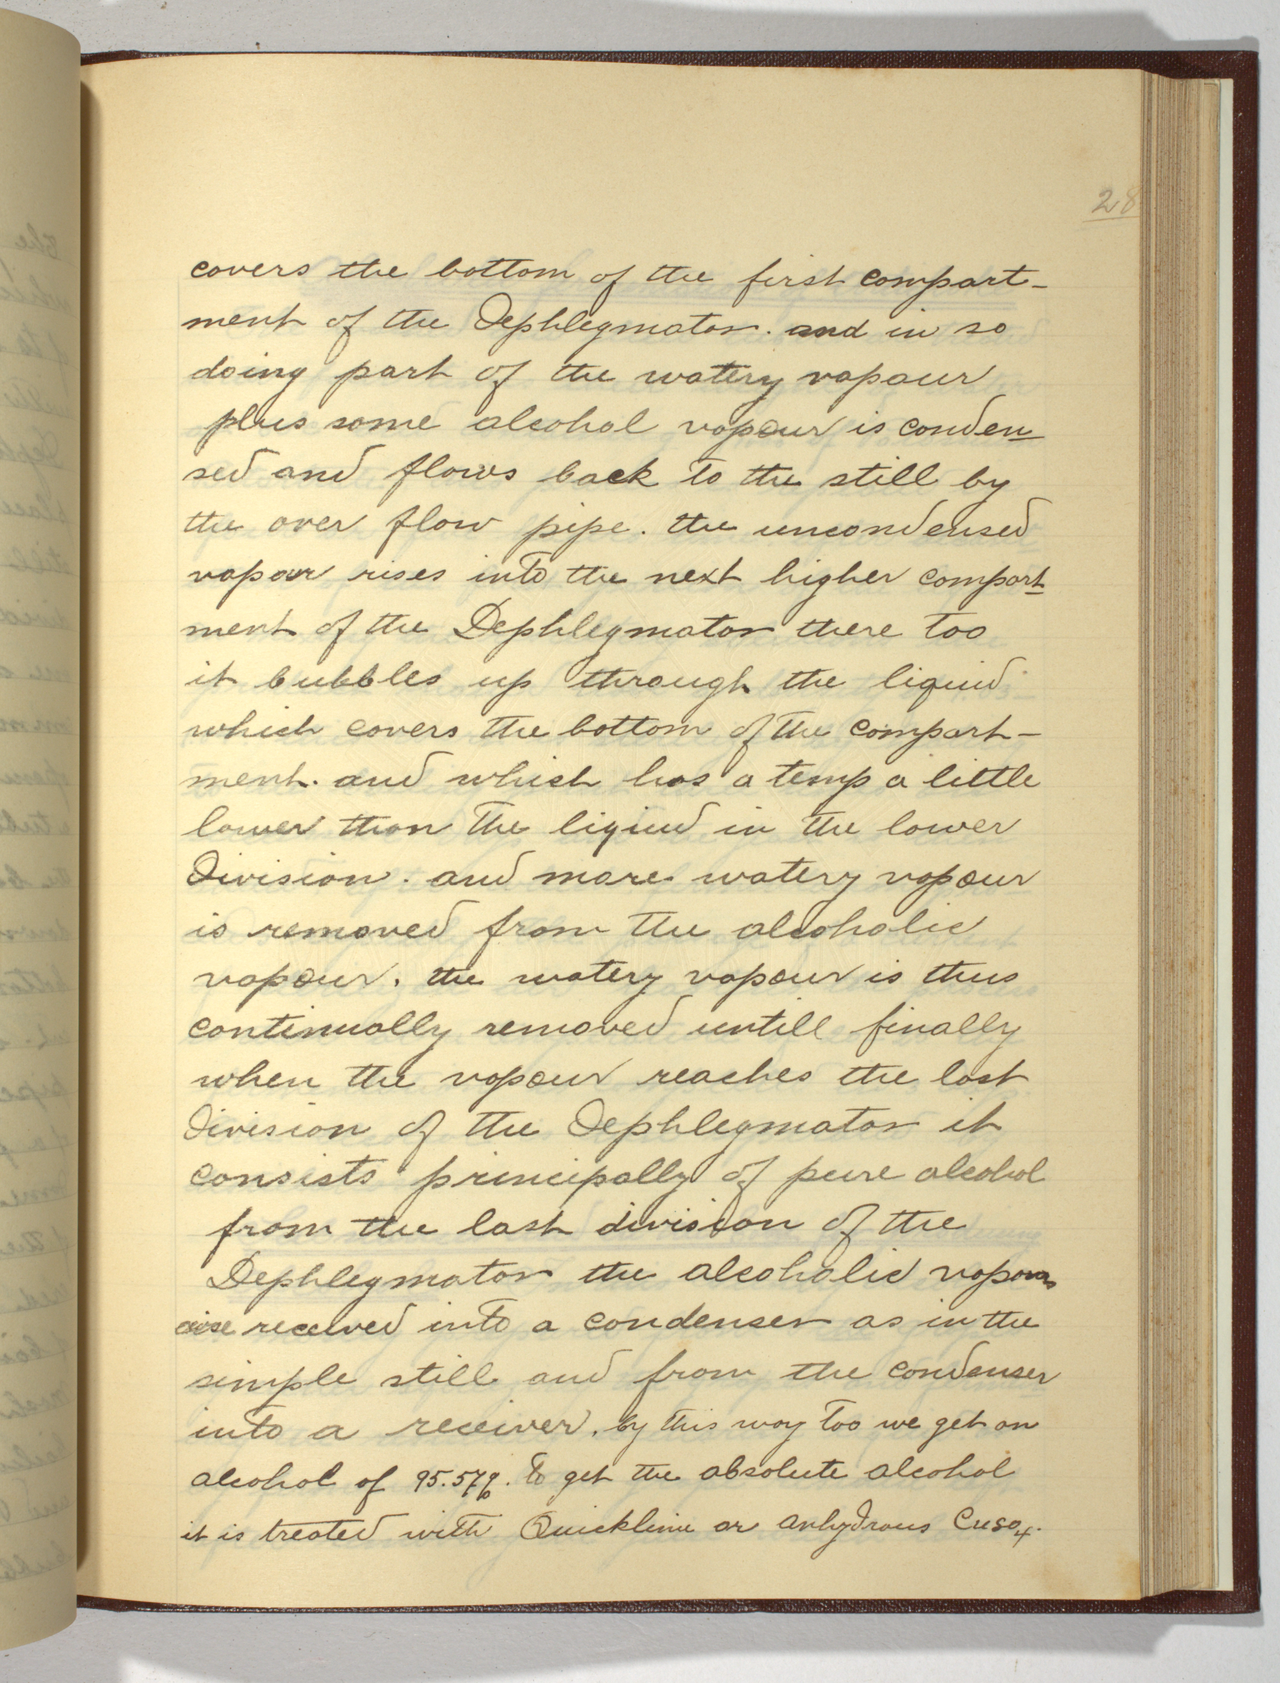 28
covers the bottom of the first compart-
ment of the Dephlegmator. and in so
doing part of the watery vapour
plus some alcohol vapour is conden
sed and flows back to the still by
the over flow pipe. the uncondensed
vapour rises into the next higher compart
ment of the Dephlegmator there too
it bubbles up through the liquid
which covers the bottom of the compart-
ment. and which has a temp a little
lower than the liquid in the lower
division. and more watery vapour
is removed from the alcoholic
vapour. the watery vapour is thus
continually removed untill finally
when the vapour reaches the last
division of the Dephlegmator it
consists principally of pure alcohol
from the last division of the
Dephlegmator the alcoholic vapours
received into a condenser as in the
simple still and from the condenser
into a receiver. by this way too we get an
alcohol of 95.57%. To get the absolute alcohol
it is treated with Quicklime or anhydrous CuSO4.